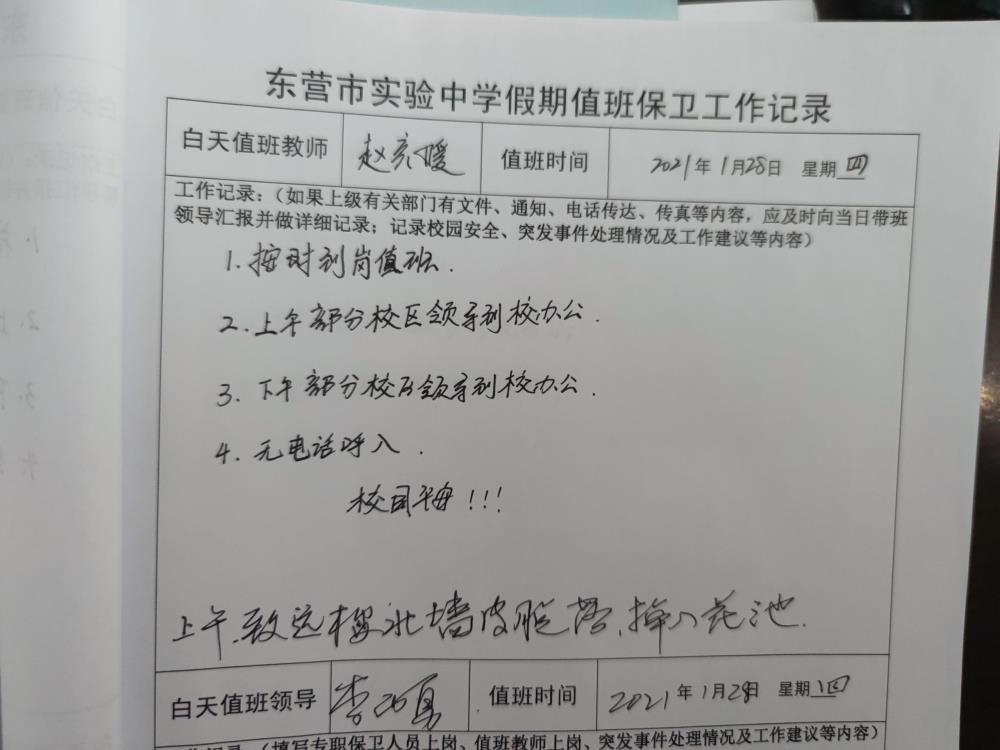 东营市实验中学假期值班保卫工作记录
白天值班教师 赵 媛 值班时间 2021年1月28日 星期四
工作记录：（如果上级有关部门有文件、通知、电话传达、传真等内容，应及时向当日带班
领导汇报并做详细记录；记录校园安全、突发事件处理情况及工作建议等内容）
1. 按时到岗值班.
2. 上午部分校区领导到校办公.
3. 下午部分校区领导到校办公.
4. 无电话呼入.
校园平安!!!
上午,致远楼北墙皮脱落,掉入花池.
白天值班领导 李 勇 值班时间 2021年1月28日 星期四
（填写专职保卫人员上岗、值班教师上岗、突发事件处理情况及工作建议等内容）